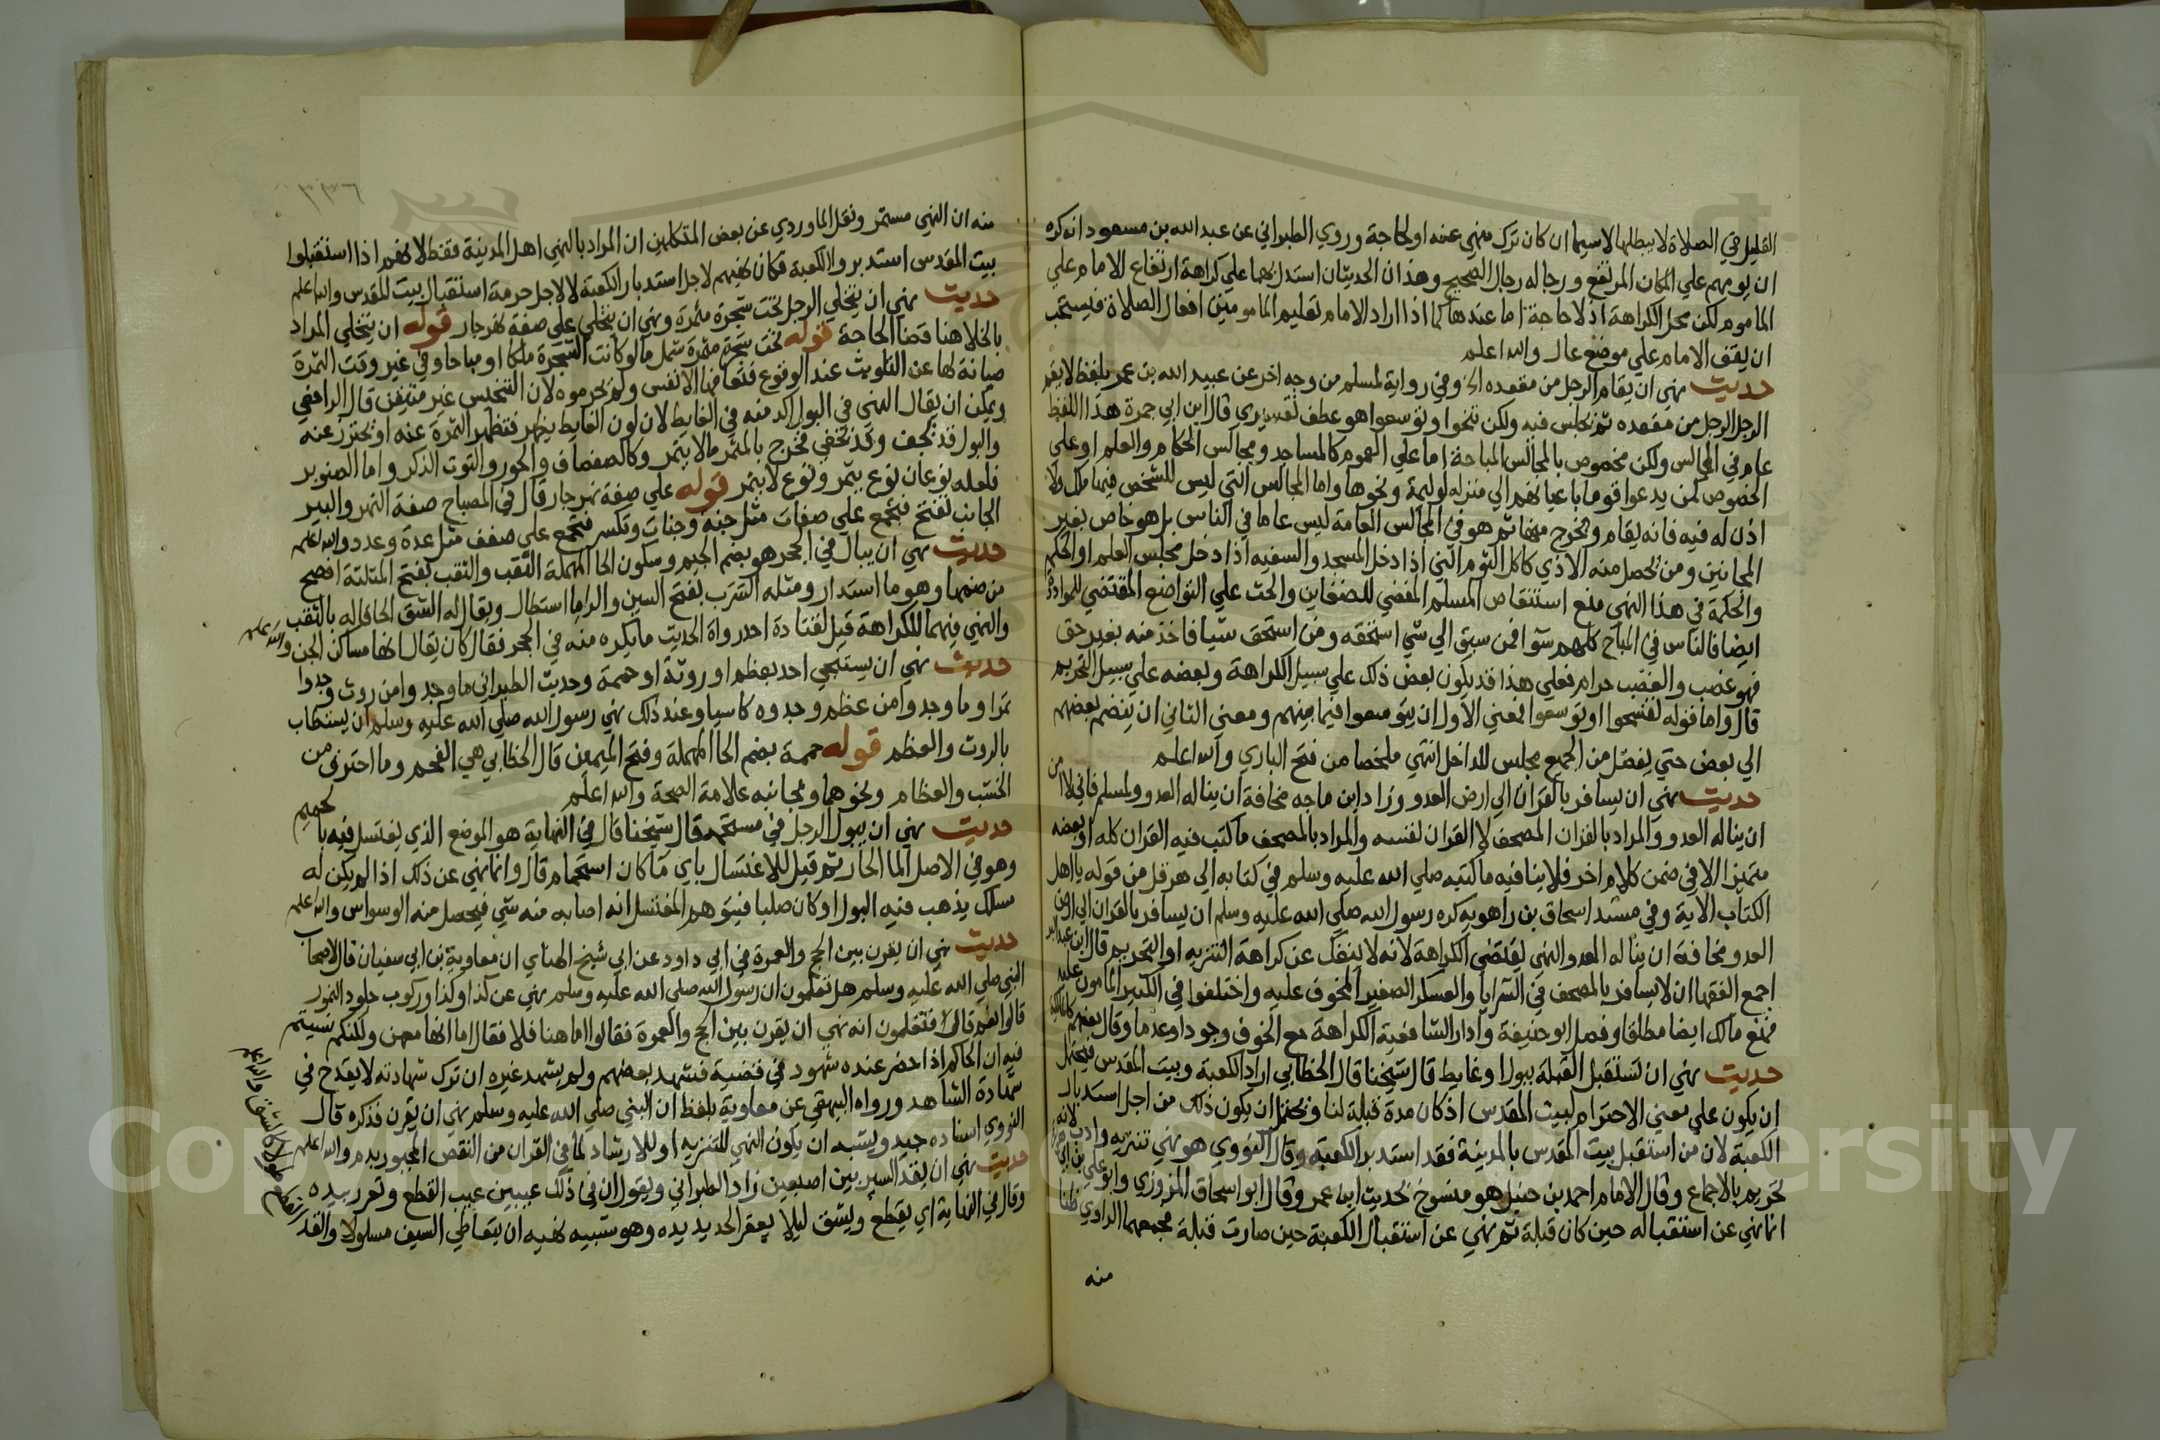 القليل في الصلاة لا يبطلها لاسيما ان كان ترك منهي عنه او لحاجة وروي الطبراني عن عبد الله بن مسعود انه كره
ان يومهم علي المكان المرتفع ورجاله رجال الصحيح وهذان الحديثان استدل بهما علي كراهة ارتفاع الامام علي
الماموم لكن محل الكراهة اذ لا حاجة اما عندها كما اذا اراد الامام تعليم المامومين افعال الصلاة فيستحب
ان يقف الامام علي موضع عال والله اعلم
حديث نهي ان يقام الرجل من مقعده الخ وفي رواية لمسلم من وجه اخر عن عبيد الله بن عمر بلفظ لا يقم
الرجل الرجل من مقعده ثم يجلس فيه ولكن تفسحوا وتوسعوا هو عطف تفسيري قال ابن ابي جمرة هذا اللفظ
عام في المجالس ولكن مخصوص بالمجالس المباحة اما علي العموم كالمساجد ومجالس الحكام والعلم او علي
الخصوص كمن يدعوا قوما باعيانهم الي منزله لوليمة ونحوها واما المجالس التي ليس للشخص فيها ملك ولا
اذن له فيه فانه يقام ويخرج منها ثم هو في المجالس العامة ليس عاما في الناس بل هو خاص بغير
المجانين ومن يحصل منه الاذي كاكل الثوم الني اذا دخل المسجد والسفيه اذا دخل مجلس العلم او الحكم
والحكمة في هذا النهي منع استنقاص المسلم المفضي للضغاين والحث علي التواضع المقتضي للموادة
ايضا فالناس في المباح كلهم سوآ فمن سبق الي شي استحقه ومن استحق شيا فاخذ منه بغير حق
فهو غصب والغصب حرام فعلي هذا قد يكون بعض ذلك علي سبيل الكراهة وبعضه علي سبيل التحريم
قال واما قوله تفسحوا او توسعوا فمعني الاول ان يتوسعوا فيما بينهم ومعني الثاني ان ينضم بعضهم
الي بعض حتي يفضل من الجميع مجلس للداخل انتهي ملخصا من فتح الباري والله اعلم
حديث نهي ان يسافر بالقران الي ارض العدو وزاد ابن ماجه مخافة ان يناله العدو ولمسلم فاني لا امن
ان يناله العدو والمراد بالقران المصحف لا القران نفسه والمراد بالمصحف ما كتب فيه القران كله او بعضه
متميزا لا في ضمن كلام اخر فلا ينافيه ما كتبه صلي الله عليه وسلم في كتابه الي هرقل من قوله يااهل
الكتاب الاية وفي مسند اسحاق بن راهويه كره رسول الله صلي الله عليه وسلم ان يسافر بالقران الي ارض
العدو مخافة ان يناله العدو والنهي يقتضي الكراهة لانه لا ينفك عن كراهة التنزيه او التحريم قال ابن عبد البر
اجمع الفقها ان لا يسافر بالمصحف في السرايا والعسكر الصغير المخوف عليه واختلفوا في الكبير المامون عليه
فمنع مالك ايضا مطلقا وفصل ابو حنيفة وادار الشافعية الكراهة مع الخوف وجودا وعدما وقال بعضهم كالمالكية
حديث نهي ان تستقبل القبلة ببول او غايط قال شيخنا قال الخطابي اراد الكعبة وبيت المقدس فيحتمل
ان يكون علي معني الاحترام لبيت المقدس اذ كان مدة قبلة لنا ويحتمل ان يكون ذلك من اجل استدبار
الكعبة لان من استقبل بيت المقدس بالمدينة فقد استدبر الكعبة وقال النووي هو نهي تنزيه وادب لانه
تحريم بالاجماع وقال الامام احمد بن حنبل هو منسوخ بحديث ابن عمر وقال ابو اسحاق المروزي وابو علي بن ابي
انما نهي عن استقباله حين كان قبلة ثم نهي عن استقبال الكعبة حين صارت قبلة فجمعهما الراوي ظنا
منه
٣٣٦
منه ان النهي مستمر ونقل الماوردي عن بعض المتكلمين ان المراد بالنهي اهل المدينة فقط لانهم اذا استقبلوا
بيت المقدس استدبروا الكعبة فكان نهيهم لاجل استدبار الكعبة لا لاجل حرمة استقبال بيت المقدس والله اعلم
حديث نهي ان يتخلي الرجل تحت شجرة مثمرة ونهي ان يتخلي علي ضفة نهر جار قوله ان يتخلي المراد
بالخلا هنا قضا الحاجة قوله تحت شجرة مثمرة شمل ما لو كانت الشجرة ملكا او مباحا وفي غير وقت الثمرة
صيانة لها عن التلويث عند الوقوع فتعافها الانفس ولم يحرموه لان التنجيس غير متيقن قال الرافعي
ويمكن ان يقال النهي في البول اكد منه في الغايط لان لون الغايط يظهر فتطهر الثمرة عنه او يحترز عنه
والبول قد يجف وقد يخفي فخرج بالمثمر ما لا يثمر وكالصفصاف والحور والتوت الذكر واما الصنوبر
فلعله نوعان نوع يثمر ونوع لا يثمر قوله علي ضفة نهر جار قال في المصباح ضفة النهر والبير
الجانب تفتح فتجمع علي ضفات مثل جنة وجنات وتكسر فتجمع علي ضفف مثل عدة وعدد والله اعلم
حديث نهي ان يبال في الجحر هو بضم الجيم وسكون الحا المهملة الثقب والثقب بفتح المثلثة افصح
من ضمها وهو ما استدار ومثله السرب بفتح السين والرا ما استطال ويقال له الشق الحاقا له بالثقب
والنهي فيهما للكراهة قيل لقتادة احد رواة الحديث ما يكره منه في الجحر فقال كان يقال انها مساكن الجن والله اعلم
حديث نهي ان يستنجي احد بعظم او روثة او حممة وحديث الطبراني ما وجدوا من روث وجدوا
تمرا وما وجدوا من عظم وجدوه كاسيا وعند ذلك نهي رسول الله صلي الله عليه وسلم ان يستطاب
بالروث والعظم قوله حممة بضم الحا المهملة وفتح الميمين قال الخطابي هي الفحم وما احترق من
الخشب والعظام ونحوهما وبجانبه علامة الصحة والله اعلم
حديث نهي ان يبول الرجل في مستحمه قال شيخنا قال في النهاية هو الموضع الذي يغتسل فيه بالحميم
وهو في الاصل الما الحار ثم قيل للاغتسال باي ما كان استحمام قال وانما نهي عن ذلك اذا لم يكن له
مسلك يذهب فيه البول او كان صلبا فيتوهم المغتسل انه اصابه منه شي فيحصل منه الوسواس والله اعلم
حديث نهي ان يقرن بين الحج والعمرة في ابي داود عن ابي شيخ الهناي ان معاوية بن ابي سفيان قال لاصحاب
النبي صلي الله عليه وسلم هل تعلمون ان رسول الله صلي الله عليه وسلم نهي عن كذا وكذا وركوب جلود النمور
قالوا نعم قال افتعلمون انه نهي ان يقرن بين الحج والعمرة فقالوا اما هنا فلا فقال اما انها معهن ولكنكم نسيتم
فيه ان الحاكم اذا حضر عنده شهود في قضية فشهد بعضهم ولم يشهد غيره ان ترك شهادته لا يقدح في
شهادة الشاهد ورواه البيهقي عن معاوية بلفظ ان النبي صلي الله عليه وسلم نهي ان يقرن فذكره قال
النووي اسناده جيد ويشبه ان يكون النهي للتنزيه او للارشاد لما في القران من النقص المجبور بدم والله اعلم
حديث نهي ان يقد السير بين اصبعين زاد الطبراني ويقول ان في ذلك عيبين عيب القطع وتعزير يده
وقال في النهاية اي يقطع ويشق ليلا يعقر الحديد يده وهو شبيه نهيه ان يتعاطي السيف مسلولا والقد
Copyright © King Saud University